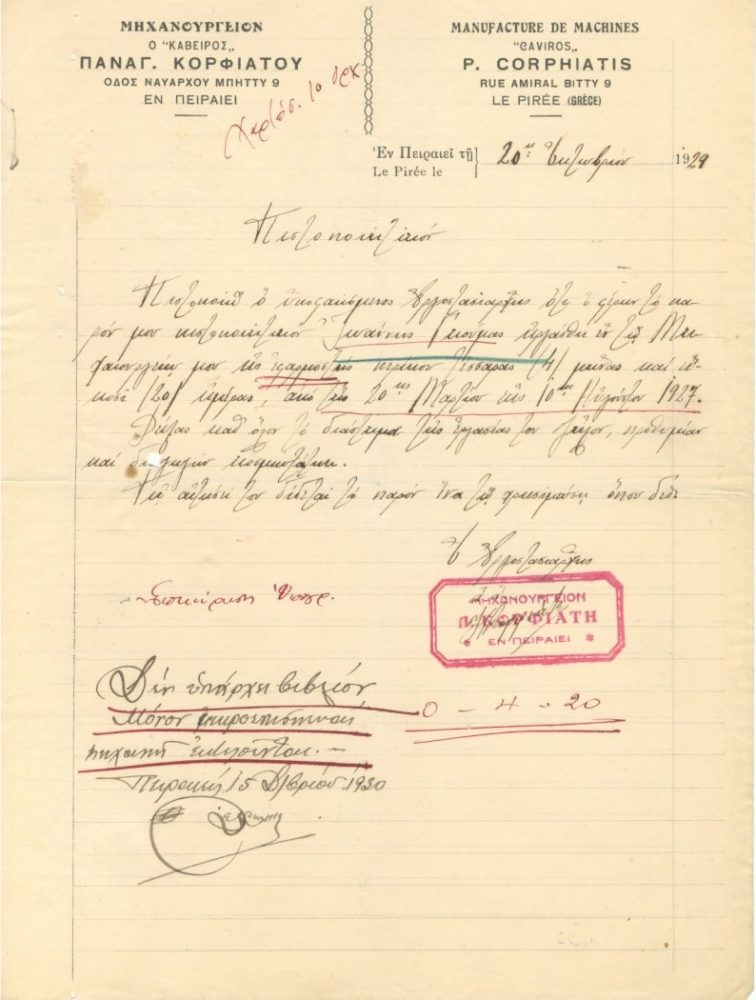 ΜΗΧΑΝΟΥΡΓΕΙΟΝ
Ο "ΚΑΒΕΙΡΟΣ„
ΠΑΝΑΓ. ΚΟΡΦΙΑΤΟΥ
ΟΔΟΣ ΝΑΥΑΡΧΟΥ ΜΠΗΤΤΥ 9
ΕΝ ΠΕΙΡΑΙΕΙ
MANUFACTURE DE MACHINES
"CAVIROS„
P. CORPHIATIS
RUE AMIRAL BITTY 9
LE PIRÉE (GRÈCE)
Ἐν Πειραιεῖ τῇ 20 Ὀκτωβρίου 1929
Le Pirée le
Πιστοποιητικόν
Πιστοποιῶ ὁ ὑποφαινόμενος Ἐργοστασιάρχης ὅτι ὁ φέρων τὸ πα
ρόν μου πιστοποιητικόν Ἰωάννης εἰργάσθη ἐν τῷ Μη
χανουργείῳ μου ὡς ἐφαρμοστὴς τέσσαρας /4/ μῆνας καὶ εἴ
κοσι /20/ ἡμέρας, ἀπὸ τῆς 20ης Μαρτίου ἕως 10ης Αὐγούστου 1927.
Δείξας καθ' ὅλον τὸ διάστημα τῆς ἐργασίας του ζῆλον, προθυμίαν
καὶ διαγωγὴν
Τῇ αἰτήσει του δίδεται τὸ παρὸν ἵνα τῷ χρησιμεύσῃ ὅπου δεῖ
Ὁ Ἐργοστασιάρχης
ΜΗΧΑΝΟΥΡΓΕΙΟΝ
Π. ΚΟΡΦΙΑΤΗ
ΕΝ ΠΕΙΡΑΙΕΙ
Δὲν ὑπάρχει βιβλίον
0 - 4 - 20
Μόνον
Πειραιεύς 15 1930